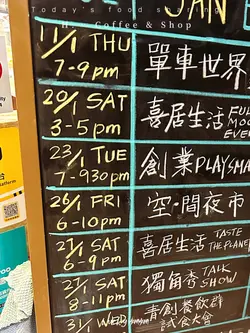 Today's food sharing
Coffee & Shop
11/1 THU
7-9pm
單車世界
20/1 SAT
3-5pm
喜居生活
23/1 TUE
7-930pm
創業PLAYSMA
26/1 FRI
6-10pm
空·間夜市
27/1 SAT
6-9pm
喜居生活 TASTE
THE PLANE
27/1 SAT
8-11pm
獨角秀 TALK
SHOW
31/1 WED
青創餐飲群
試食大會